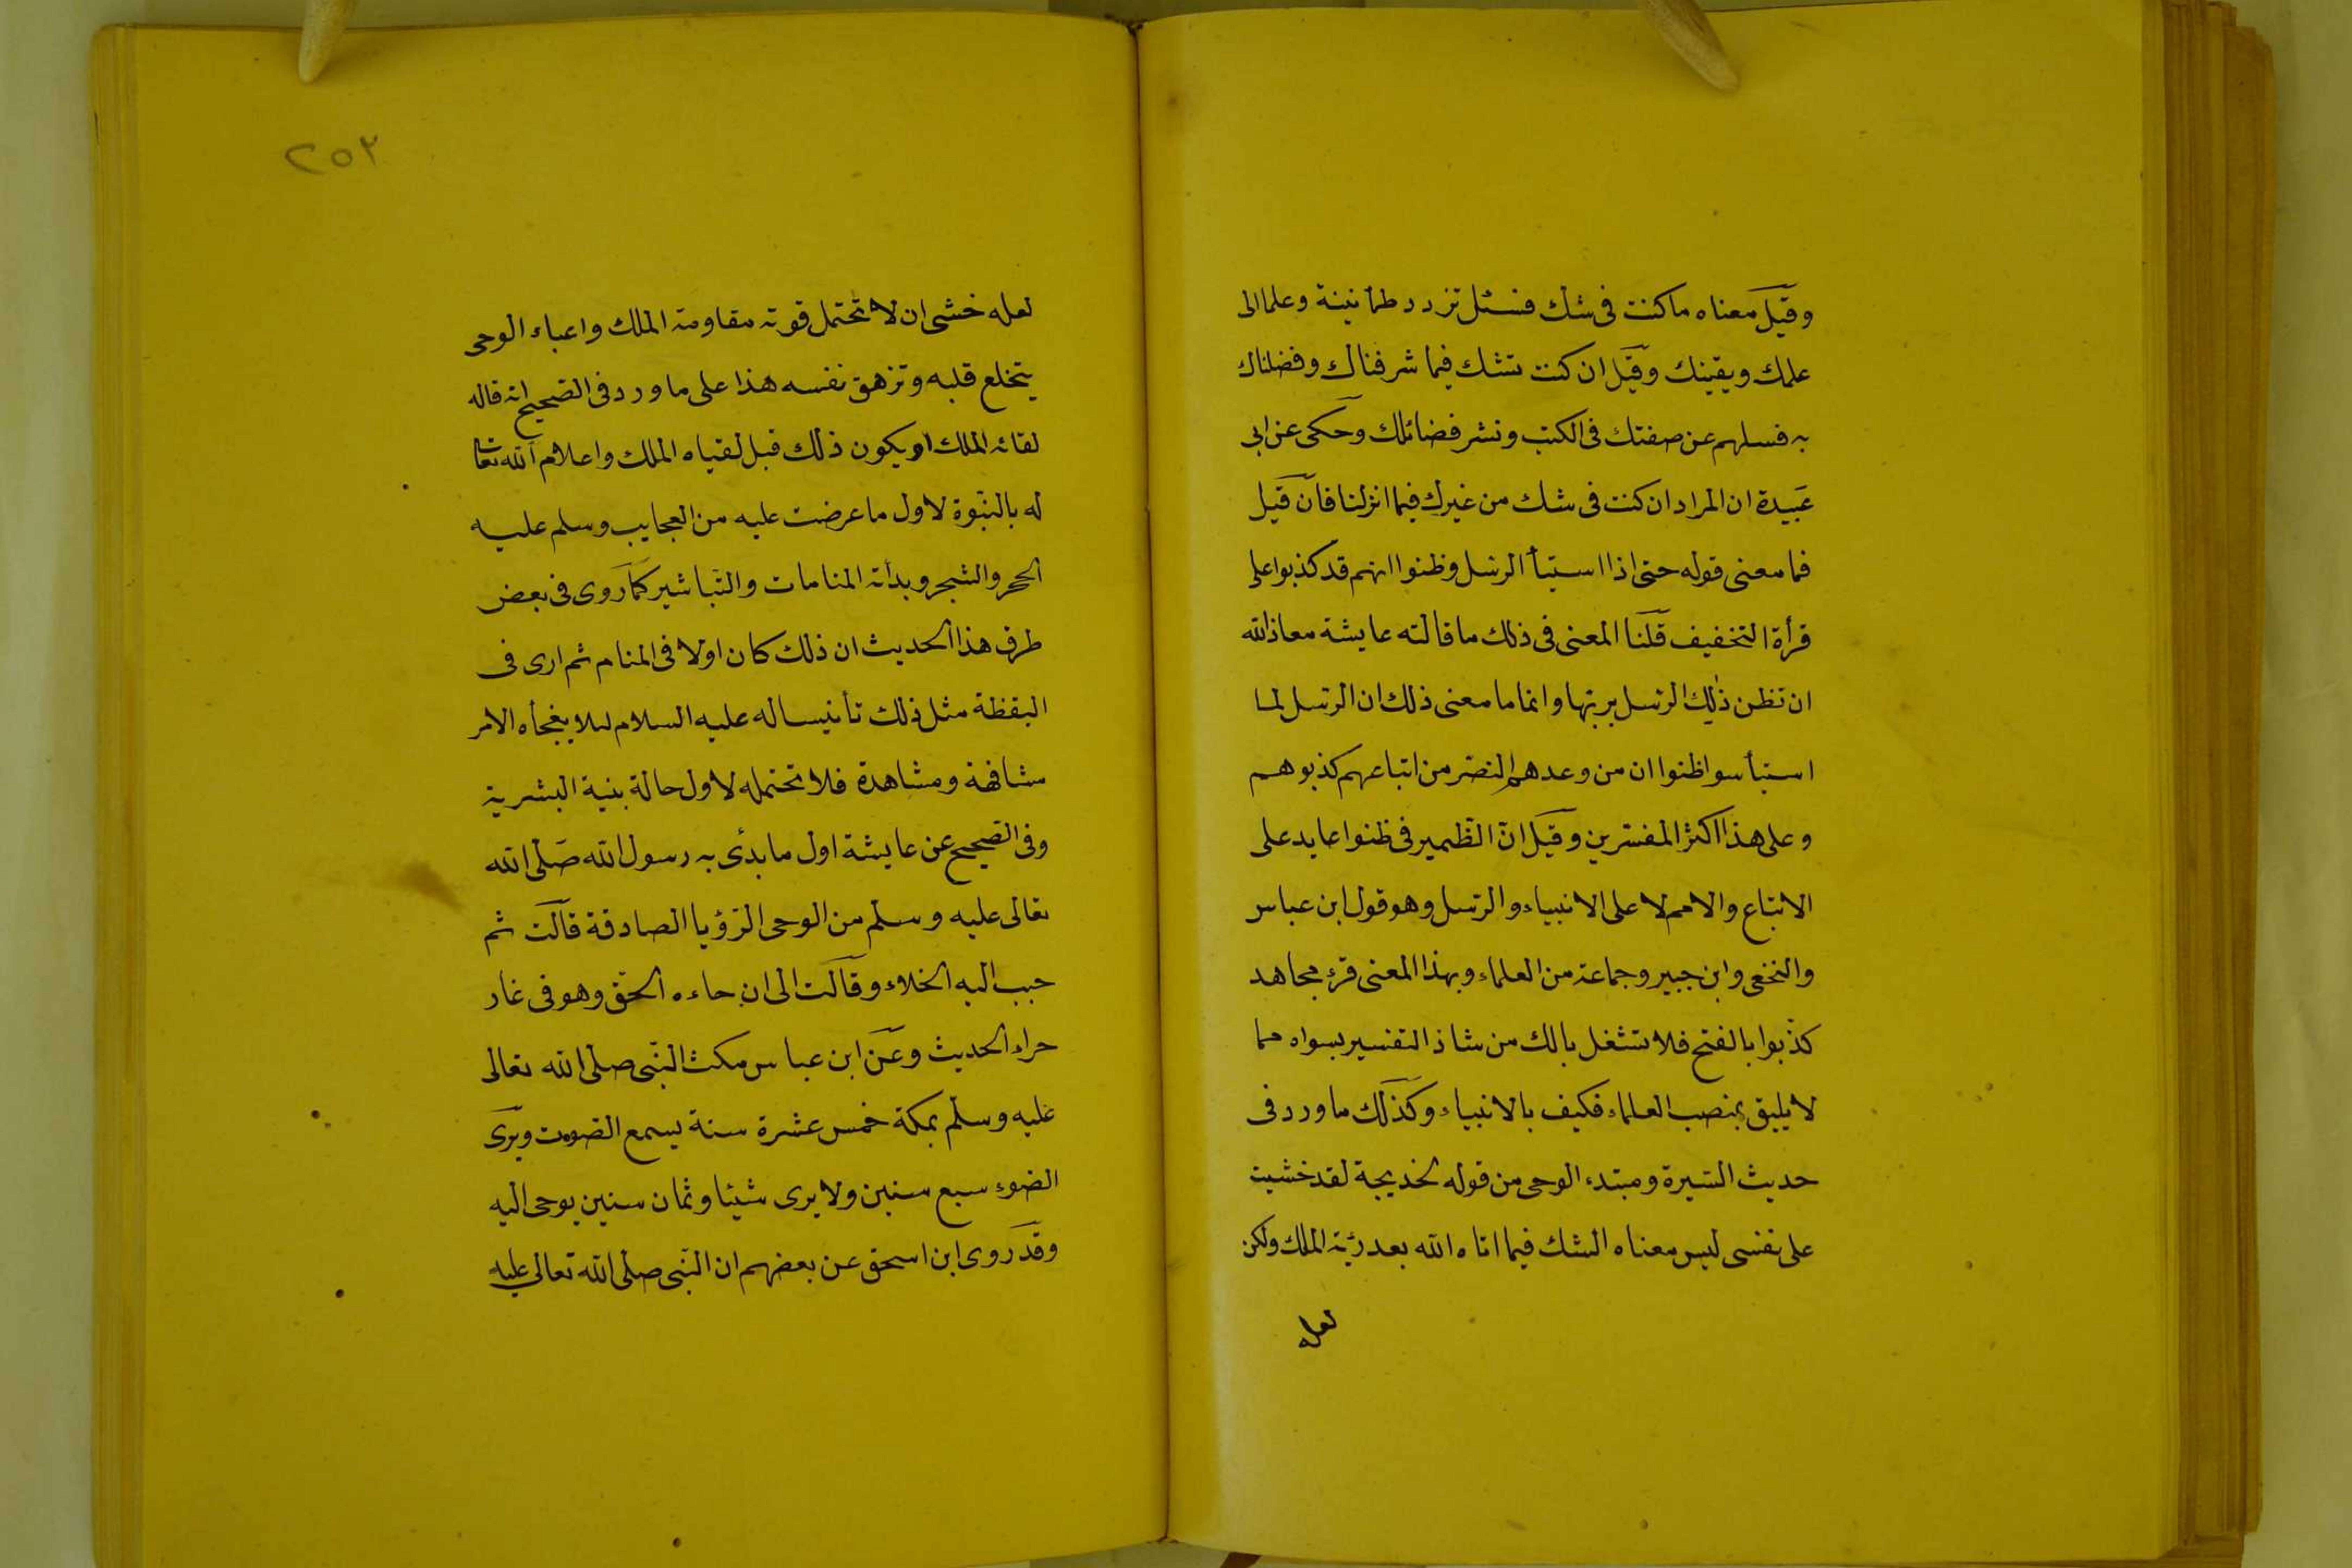 وقيل معناه ما كنت في شك فسئل تزدد طمأنينة وعلما الى
علمك ويقينك وقيل ان كنت تشك فيما شرفناك وفضلناك
به فسلهم عن صفتك في الكتب ونشر فضائلك وحكى عن ابى
عبيدة ان المراد ان كنت في شك من غيرك فيما انزلنا فان قيل
فما معنى قوله حتى اذا استيأ الرسل وظنوا انهم قد كذبوا على
قرأة التخفيف قلنا المعنى في ذلك ما قالته عايشة معاذ الله
ان تظن ذلك الرسل بربها وانما ما معنى ذلك ان الرسل لما
استيأسوا ظنوا ان من وعدهم النصر من اتباعهم كذبوهم
وعلى هذا اكثر المفسرين وقيل ان الظمير في ظنوا عايد على
الاتباع والامم لا على الانبياء والرسل وهو قول ابن عباس
والنخعى وابن جبير وجماعة من العلماء وبهذا المعنى قرء مجاهد
كذبوا بالفتح فلا تشغل بالك من شاذ التفسير بسواه مما
لا يليق بمنصب العلماء فكيف بالانبياء وكذلك ما ورد في
حديث السيرة ومبتدء الوحى من قوله لخديجة لقد خشيت
على نفسى ليس معناه الشك فيما اتاه الله بعد رؤية الملك ولكن
لعله
٢٥٣
لعله خشى ان لا تحتمل قوته مقاومة الملك واعباء الوحى
يتخلع قلبه وتزهق نفسه هذا على ما ورد في الصحيح انه قاله
لقائه الملك او يكون ذلك قبل لقياه الملك واعلام الله تعالى
له بالنبوة لاول ما عرضت عليه من العجايب وسلم عليه
الحجر والشجر وبدأته المنامات والتباشير كما روى في بعض
طرف هذا الحديث ان ذلك كان اولا في المنام ثم ارى في
اليقظة مثل ذلك تأنيسا له عليه السلام لىلا يفجأه الامر
مشافهة ومشاهدة فلا تحتمله لاول حالة بنية البشرية
وفي الصحيح عن عايشة اول ما بدئ به رسول الله صلى الله
تعالى عليه وسلم من الوحى الرؤيا الصادقة قالت ثم
حبب اليه الخلاء وقالت الى ان جاءه الحق وهو في غار
حراء الحديث وعن ابن عباس مكث النبى صلى الله تعالى
عليه وسلم بمكة خمس عشرة سنة يسمع الصوت ويرى
الضوء سبع سنين ولا يرى شيئا وثمان سنين يوحى اليه
وقد روى ابن اسحق عن بعضهم ان النبى صلى الله تعالى عليه